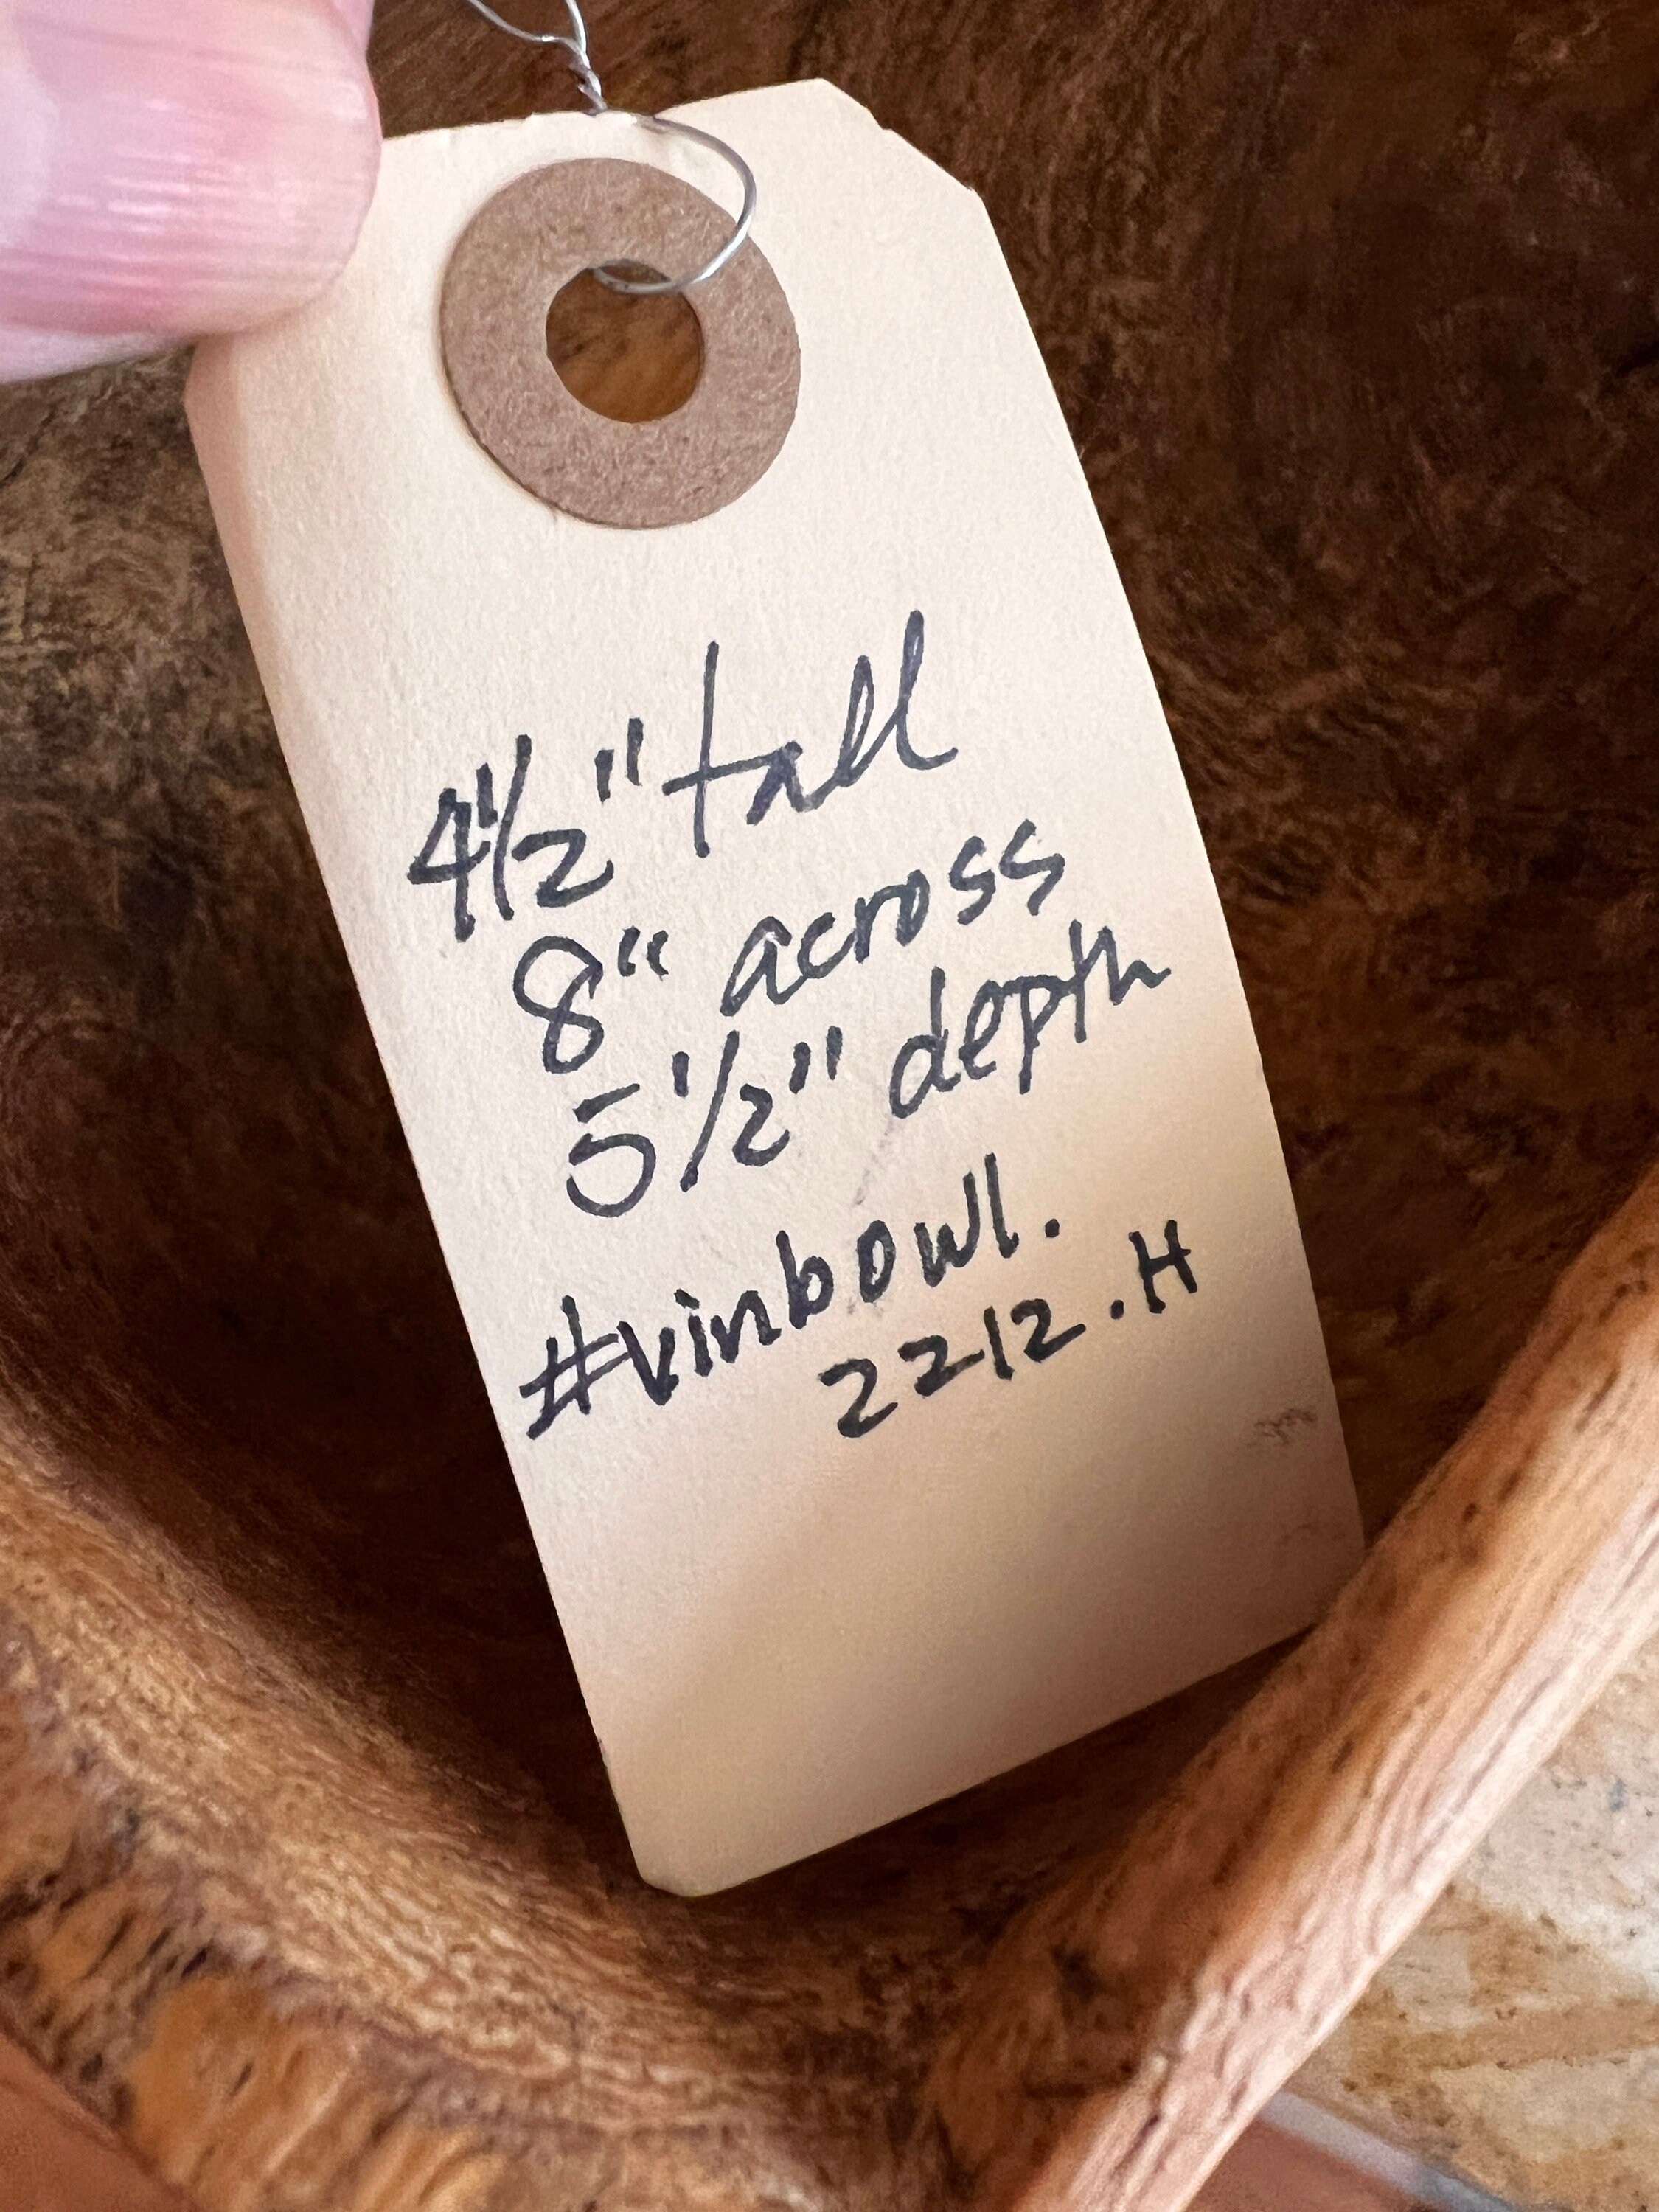 4 1/2" tall
8" across
5 1/2" depth
#vinbowl.
2212.H